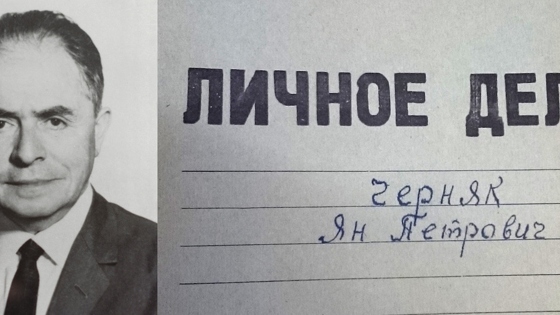 ЛИЧНОЕ ДЕЛ
Черняк
Ян Петрович